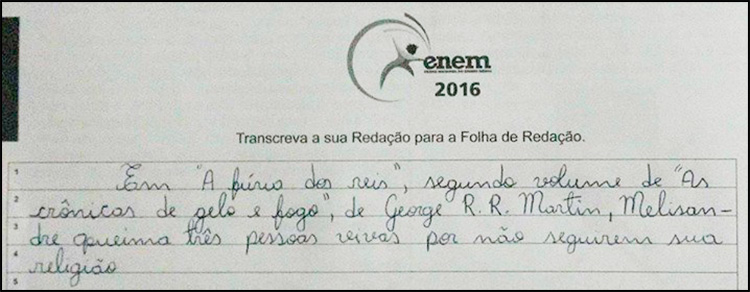 enem
2016
Transcreva a sua Redação para a Folha de Redação.
1 Em "A fúria dos reis", segundo volume de "As
2 crônicas de gelo e fogo", de George R. R. Martin, Melisan-
3 dre queima três pessoas vivas por não seguirem sua
4 religião
5